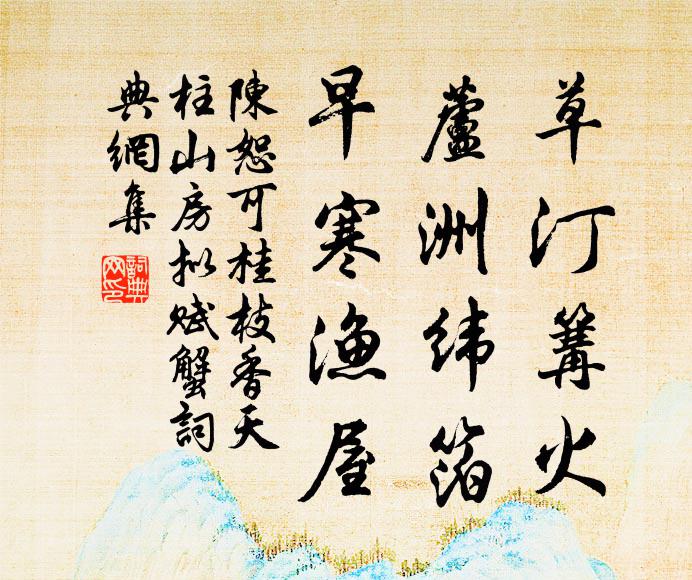 草汀篝火
蘆洲緯箔
早寒漁屋
陳恕可桂枝香天
柱山房拟赋蟹詞
典網集
詞典网印